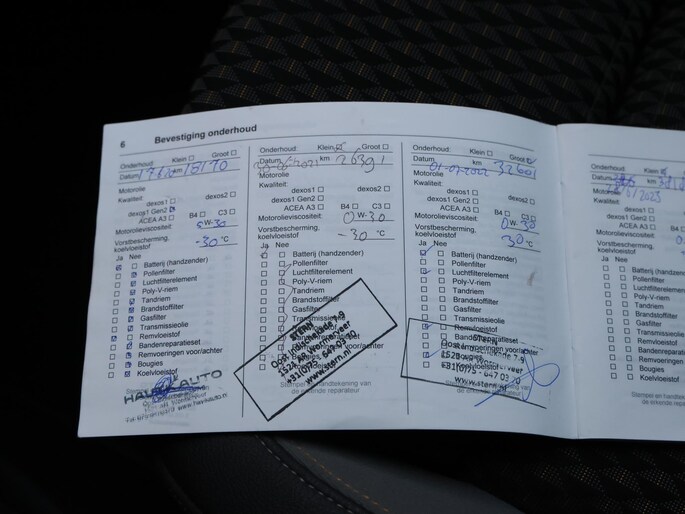 6 Bevestiging onderhoud
Onderhoud: Klein Groot
Datum km 18170
Motorolie
Kwaliteit:
dexos1 dexos2
dexos1 Gen2
ACEA A3 B4 C3
Motorolieviscositeit: W-30
Vorstbescherming,
koelvloeistof -30 °C
Ja Nee
Batterij (handzender)
Pollenfilter
Luchtfilterelement
Poly-V-riem
Tandriem
Brandstoffilter
Gasfilter
Transmissieolie
Remvloeistof
Bandenreparatieset
Remvoeringen voor/achter
Bougies
Koelvloeistof
Stempel
HAVIK AUTO
Onderhoud: Klein Groot
Datum 2021 km 26391
Motorolie
Kwaliteit:
dexos1 dexos2
dexos1 Gen2
ACEA A3 B4 C3
Motorolieviscositeit: 0W-30
Vorstbescherming,
koelvloeistof -30 °C
Ja Nee
Batterij (handzender)
Pollenfilter
Luchtfilterelement
Poly-V-riem
Tandriem
Brandstoffilter
Gasfilter
Transmissieolie
voor/achter
STERN
1521
+31(0)75 - 647 03 70
www.stern.nl
Stempel en handtekening van
de erkende reparateur
Onderhoud: Klein Groot
Datum 01-07-2022 km 32601
Motorolie
Kwaliteit:
dexos1 dexos2
dexos1 Gen2
ACEA A3 B4 C3
Motorolieviscositeit: 0W-30
Vorstbescherming,
koelvloeistof 30 °C
Ja Nee
Batterij (handzender)
Pollenfilter
Luchtfilterelement
Poly-V-riem
Tandriem
Brandstoffilter
Gasfilter
Transmissieolie
Remvloeistof
Bandenreparatieset
Remvoeringen voor/achter
Bougies
Koelvloeistof
STERN
647 03 70
www.stern.nl
Stempel en handtekening van
de erkende reparateur
Onderhoud: Klein
Datum km
Motorolie 2023
Kwaliteit:
dexos1
dexos1 Gen2
ACEA A3
Motorolieviscositeit:
Vorstbescherming,
koelvloeistof
Ja Nee
Batterij (hand
Pollenfilter
Luchtfilterele
Poly-V-riem
Tandriem
Brandstoff
Gasfilter
Transmiss
Remvloei
Bandenr
Remvoe
Bougies
Koelvlo
Stempel en ha
de erken